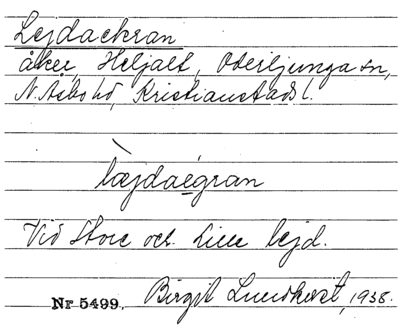 Lejdackran
åker, Heljalt, Oderljunga sn,
N. Åsbo hd, Kristianstads l.
læjdaégran
Vid Store och Lille lejd.
Nr 5499. Birgit Lundkvist, 1938.